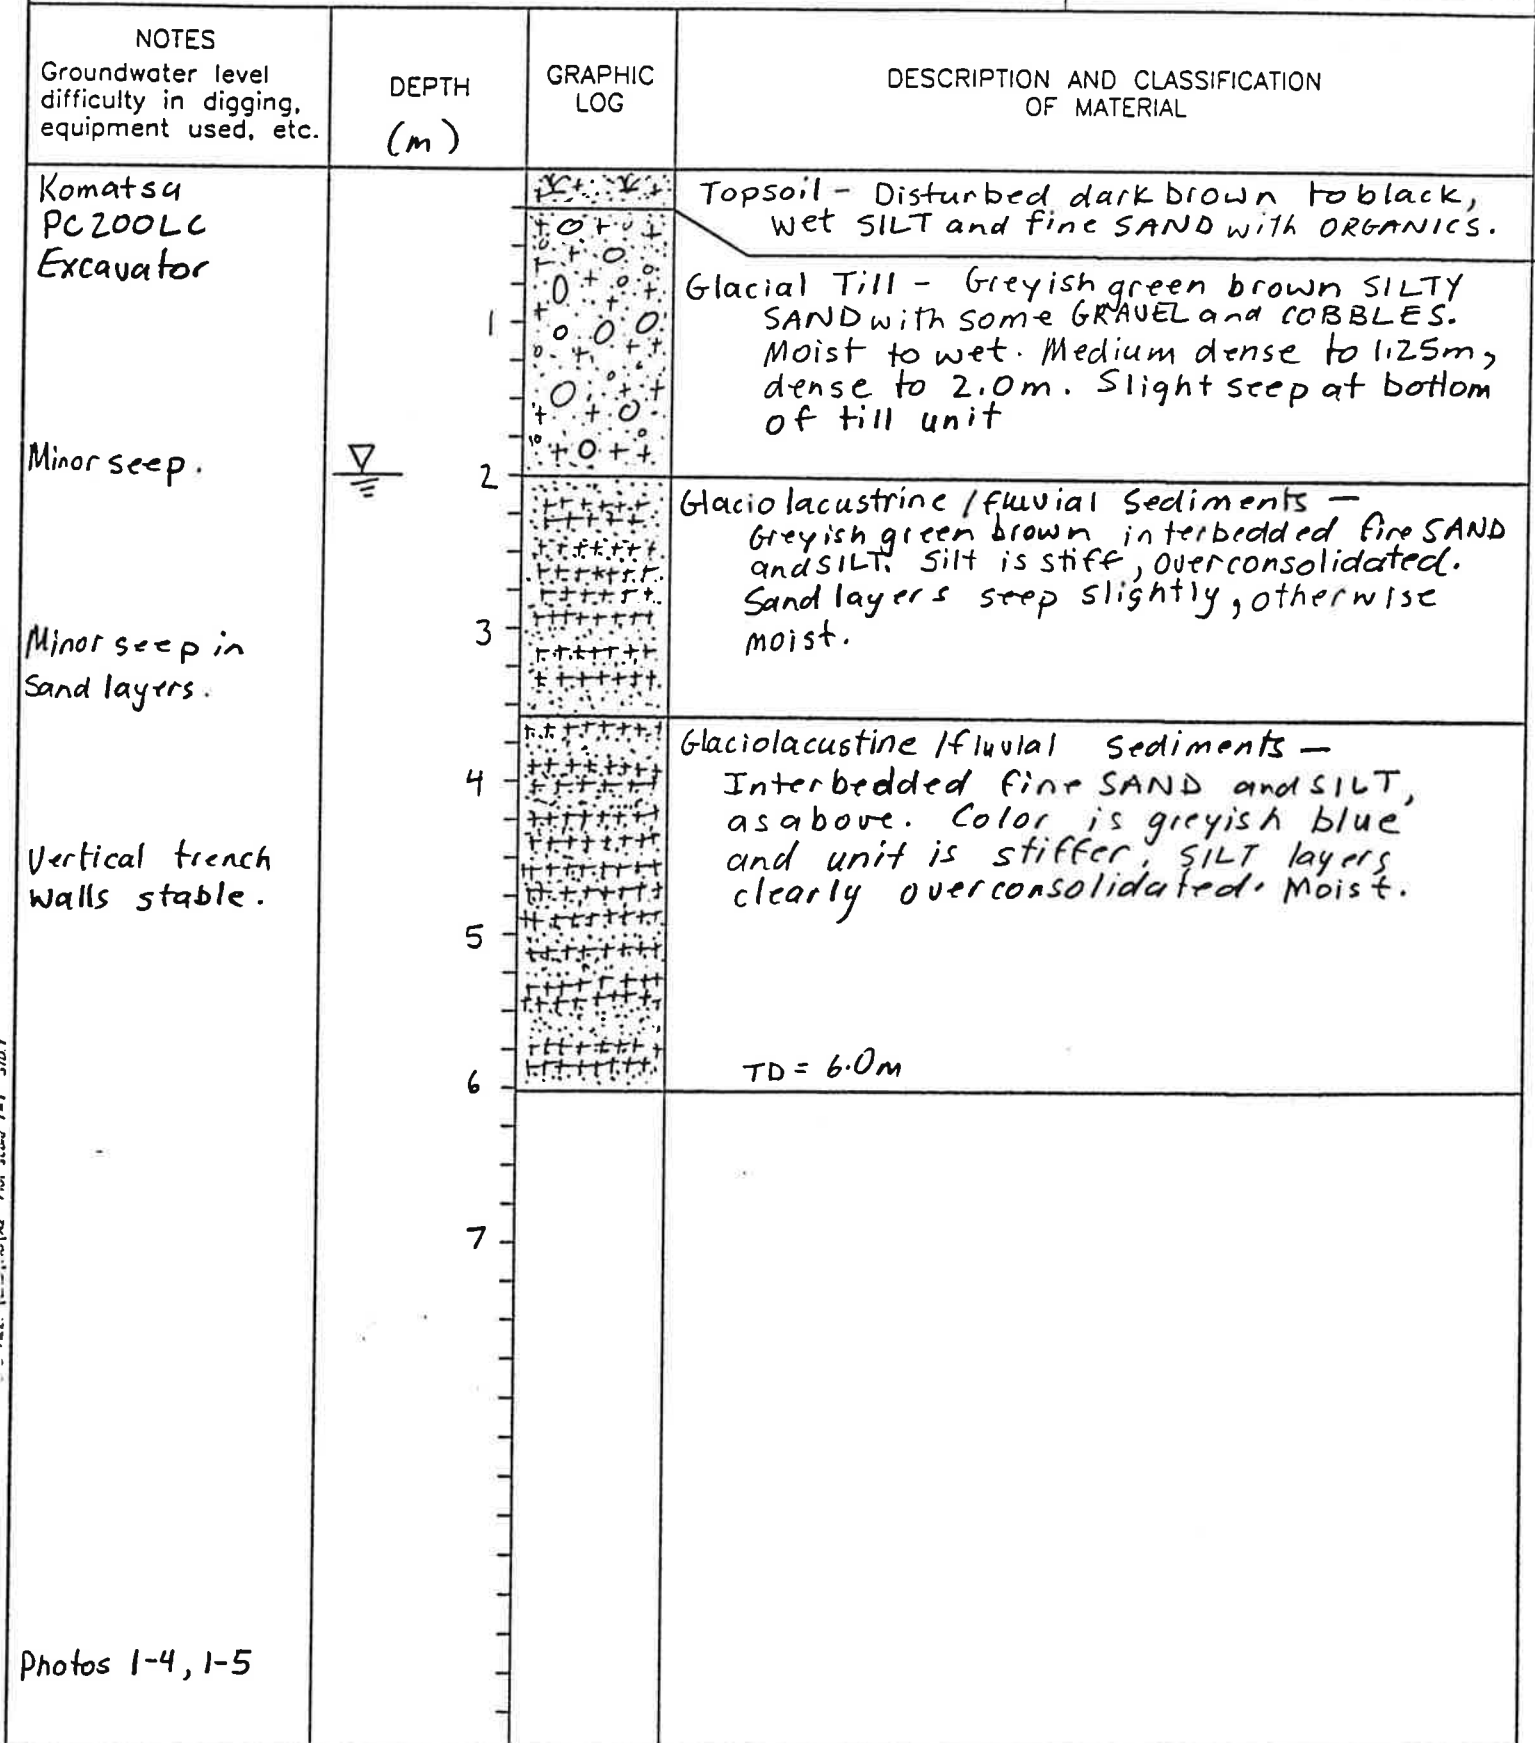 NOTES
Groundwater level
difficulty in digging,
equipment used, etc.
DEPTH
(m)
GRAPHIC
LOG
DESCRIPTION AND CLASSIFICATION
OF MATERIAL
Komatsu
PC200LC
Excavator
Topsoil - Disturbed dark brown to black,
wet SILT and fine SAND with ORGANICS.
Glacial Till - Greyish green brown SILTY
SAND with some GRAVEL and COBBLES.
Moist to wet. Medium dense to 1.25m,
dense to 2.0m. Slight seep at bottom
of till unit
1
Minor seep.
2
Glaciolacustrine / fluvial Sediments —
Greyish green brown interbedded fine SAND
and SILT. Silt is stiff, overconsolidated.
Sand layers seep slightly, otherwise
moist.
3
Minor seep in
Sand layers.
Glaciolacustine / fluvial Sediments —
Interbedded fine SAND and SILT,
as above. Color is greyish blue
and unit is stiffer. SILT layers
clearly overconsolidated. Moist.
4
Vertical trench
walls stable.
5
TD = 6.0m
6
7
Photos 1-4, 1-5